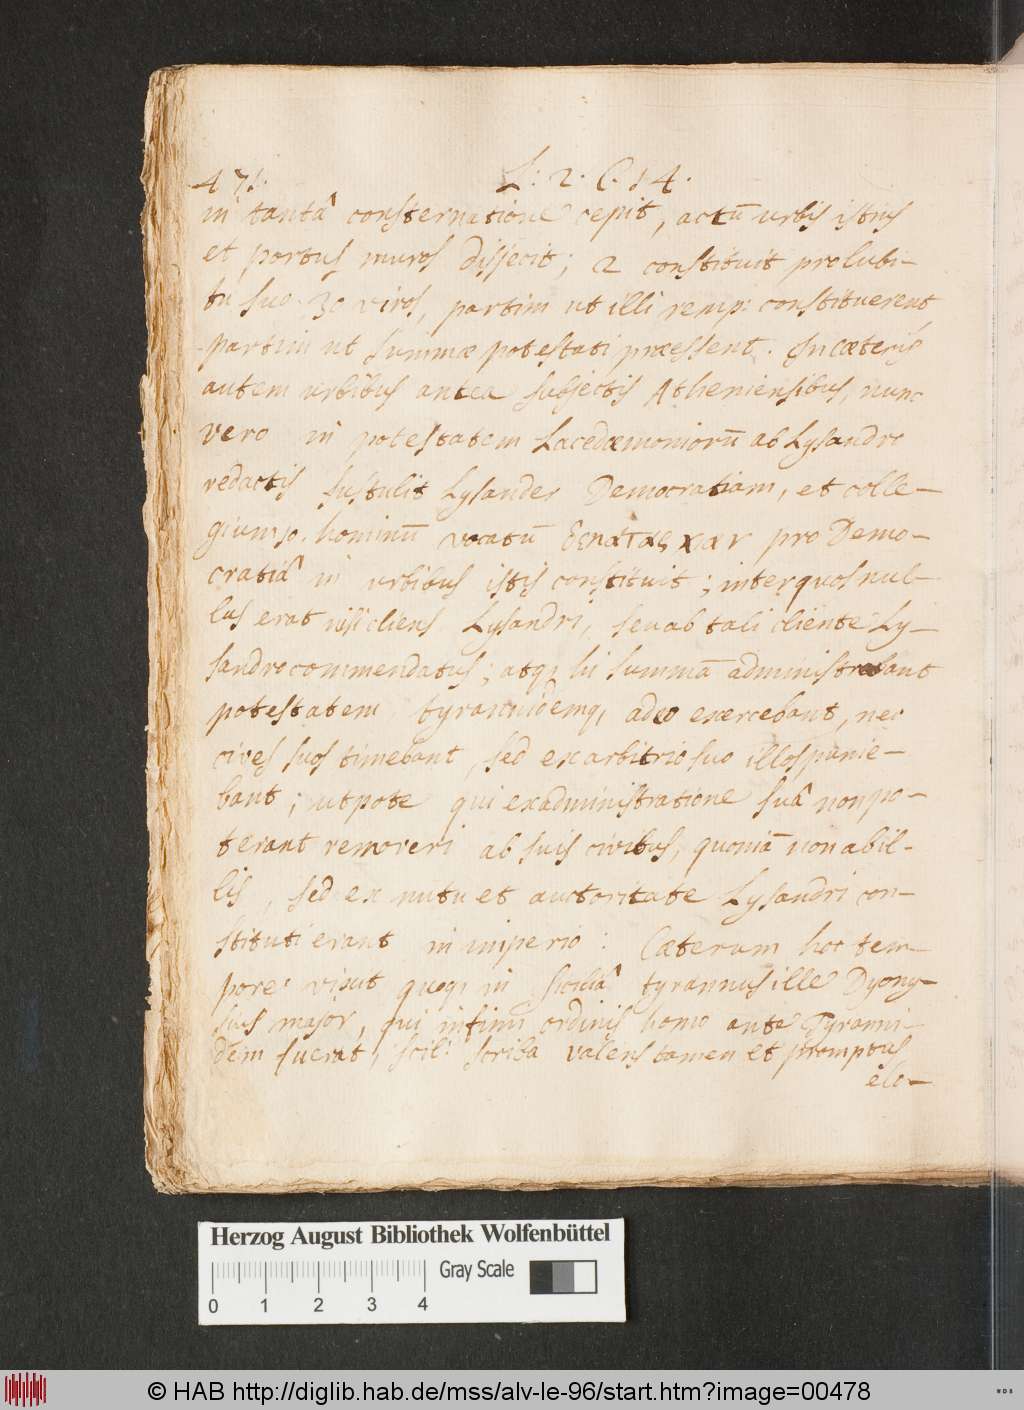 471. L: 2. C. 14.
in tantâ consternatione cepit, actū urbis istius
et portus muros disjecit; 2 constituit pro lubi-
tu suo 30 viros, partim ut illi remp: constituerent
partim ut summæ potestati præessent. In cæteris
autem urbibus antea subjectis Atheniensibus, nunc
vero in potestatem Lacedæmoniorū ab Lysandro
redactis sustulit Lysander Democratiam, et colle-
gium 10. hominū vocatū pro Demo-
cratiâ in urbibus istis constituit; inter quos nul-
lus erat nisi cliens Lysandri, seu ab tali cliente Ly-
sandro commendatus; atq, hi summā administrabant
potestatem tyrannidemq, adeo exercebant, nec
cives suos timebant, sed ex arbitrio suo illos punie-
bant; utpote qui ex administratione suâ non po-
terant removeri ab suis civibus, quoniā non ab il-
lis, sed ex nutu et auctoritate Lysandri con-
stituti erant in imperio: Cæterum hoc tem-
pore vixit quoq, in Siciliâ tyrannus ille Dyony-
sius major, qui infimi ordinis homo ante Tyranni-
dem fuerat, scil: scriba valens tamen et promptus
elo-
Herzog August Bibliothek Wolfenbüttel
Gray Scale
0 1 2 3 4
© HAB http://diglib.hab.de/mss/alv-le-96/start.htm?image=00478